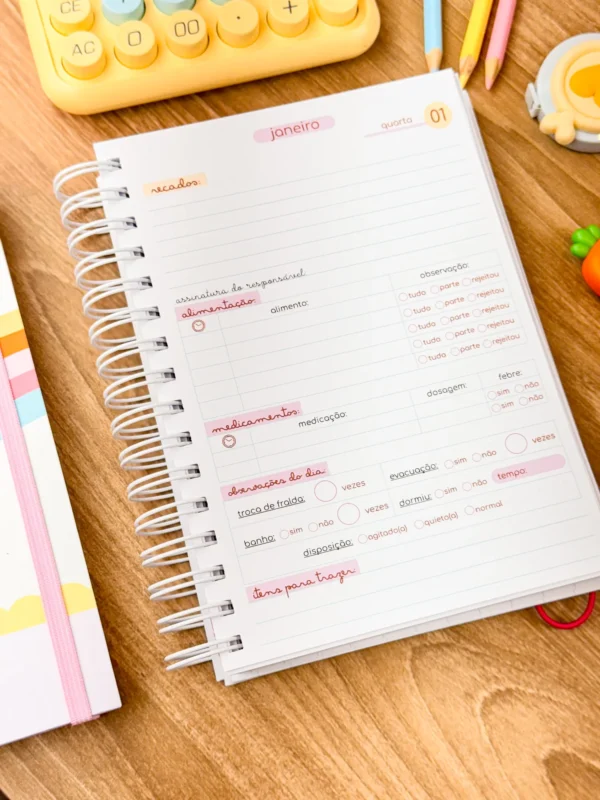 CE
AC 0 00 · +
janeiro
quarta 01
recados:
assinatura do responsável
alimentação:
alimento:
observação:
tudo parte rejeitou
tudo parte rejeitou
tudo parte rejeitou
tudo parte rejeitou
tudo parte rejeitou
medicamentos:
medicação:
dosagem:
febre:
sim não
sim não
obervações do dia
troca de fralda: vezes
evacuação: sim não vezes
banho: sim não vezes
dormiu: sim não tempo:
disposição: agitado(a) quieto(a) normal
itens para trazer